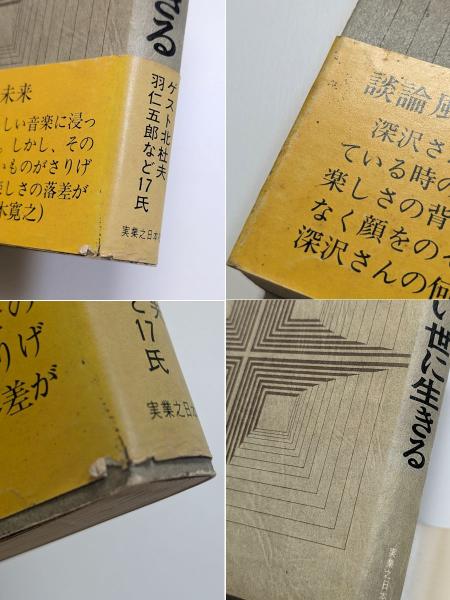 きる
未来
しい音楽に浸っ
。しかし、その
いものがさりげ
楽しさの落差が
木寛之)
ゲスト北杜夫
羽仁五郎など17氏
実業之日本
談論風
深沢さ
ている時の
楽しさの背
なく顔をのぞ
深沢さんの何
の
りげ
差が
ど17氏
実業之日本
い世に生きる
実業之日本